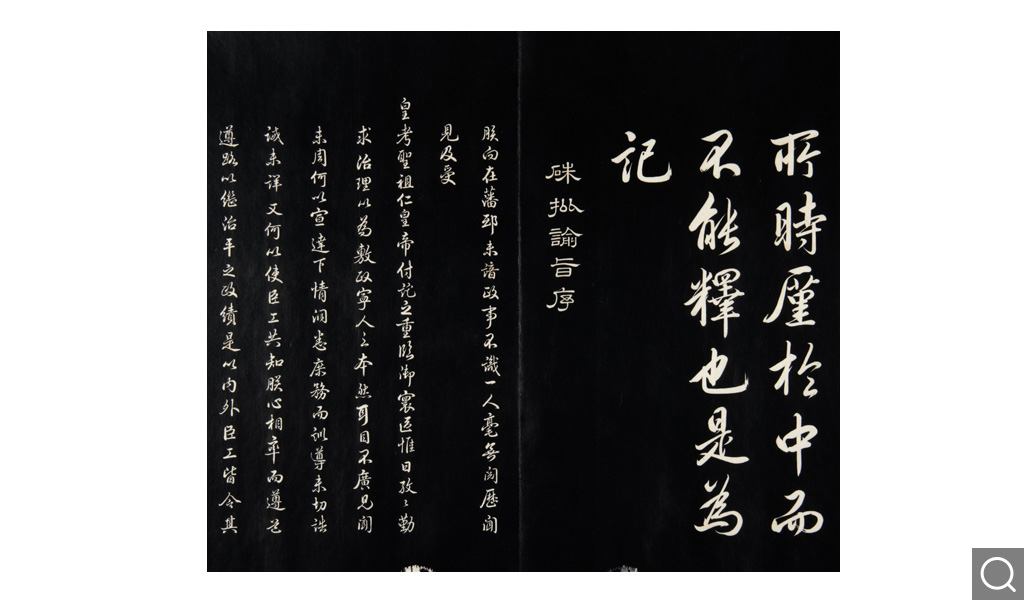 所時廑於中而
不能釋也是為
記
硃批諭旨序
朕向在藩邸未諳政事不識一人毫無閱歷聞
見及受
皇考聖祖仁皇帝付託之重臨御寰區惟日孜〻勤
求治理以為敷政寧人之本然耳目不廣見聞
未周何以宣達下情洞悉庶務而訓導未切誥
誡未詳又何以使臣工共知朕心相率而遵道
遵路以繼治平之政績是以內外臣工皆令其